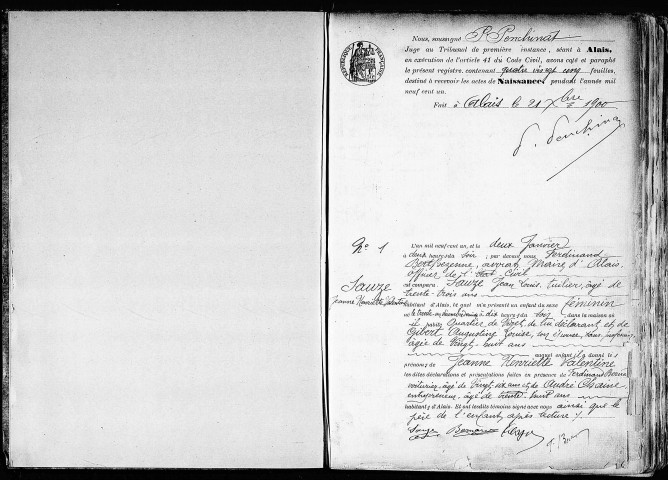 RÉPUBLIQUE FRANÇAISE
Nous, soussigné P. Penchinat
Juge au Tribunal de première instance, séant à Alais,
en exécution de l'article 41 du Code Civil, avons coté et paraphé
le présent registre, contenant quatre vingt cinq feuilles,
destiné à recevoir les actes de Naissances, pendant l'année mil
neuf cent un.
Fait à Alais le 21 Xbre 1900
P. Penchinat
No 1
Sauze
Jeanne Henriette Valentine
L'an mil neuf cent un, et le deux Janvier
à deux heures du soir; par devant nous Ferdinand
avocat, Maire d'Alais,
officier de l'état Civil
est comparu Sauze Jean Louis, tuilier, âgé de
trente-trois ans
habitant d'Alais, lequel m'a présenté un enfant du sexe féminin
né le trente à dix heures du soir dans la maison
quartier de de lui déclarant et de
Augustine Louise, son épouse, sans profession,
âgée de vingt-huit ans
auquel enfant il a donné les
prénoms de Jeanne Henriette Valentine
les dites déclarations et présentations faites en présence de Ferdinand
voiturier, âgé de vingt six ans et de André
entrepreneur, âgé de trente-huit ans
habitant d'Alais. Et ont lesdits témoins signé avec nous ainsi que le
père de l'enfant, après lecture.
Sauze